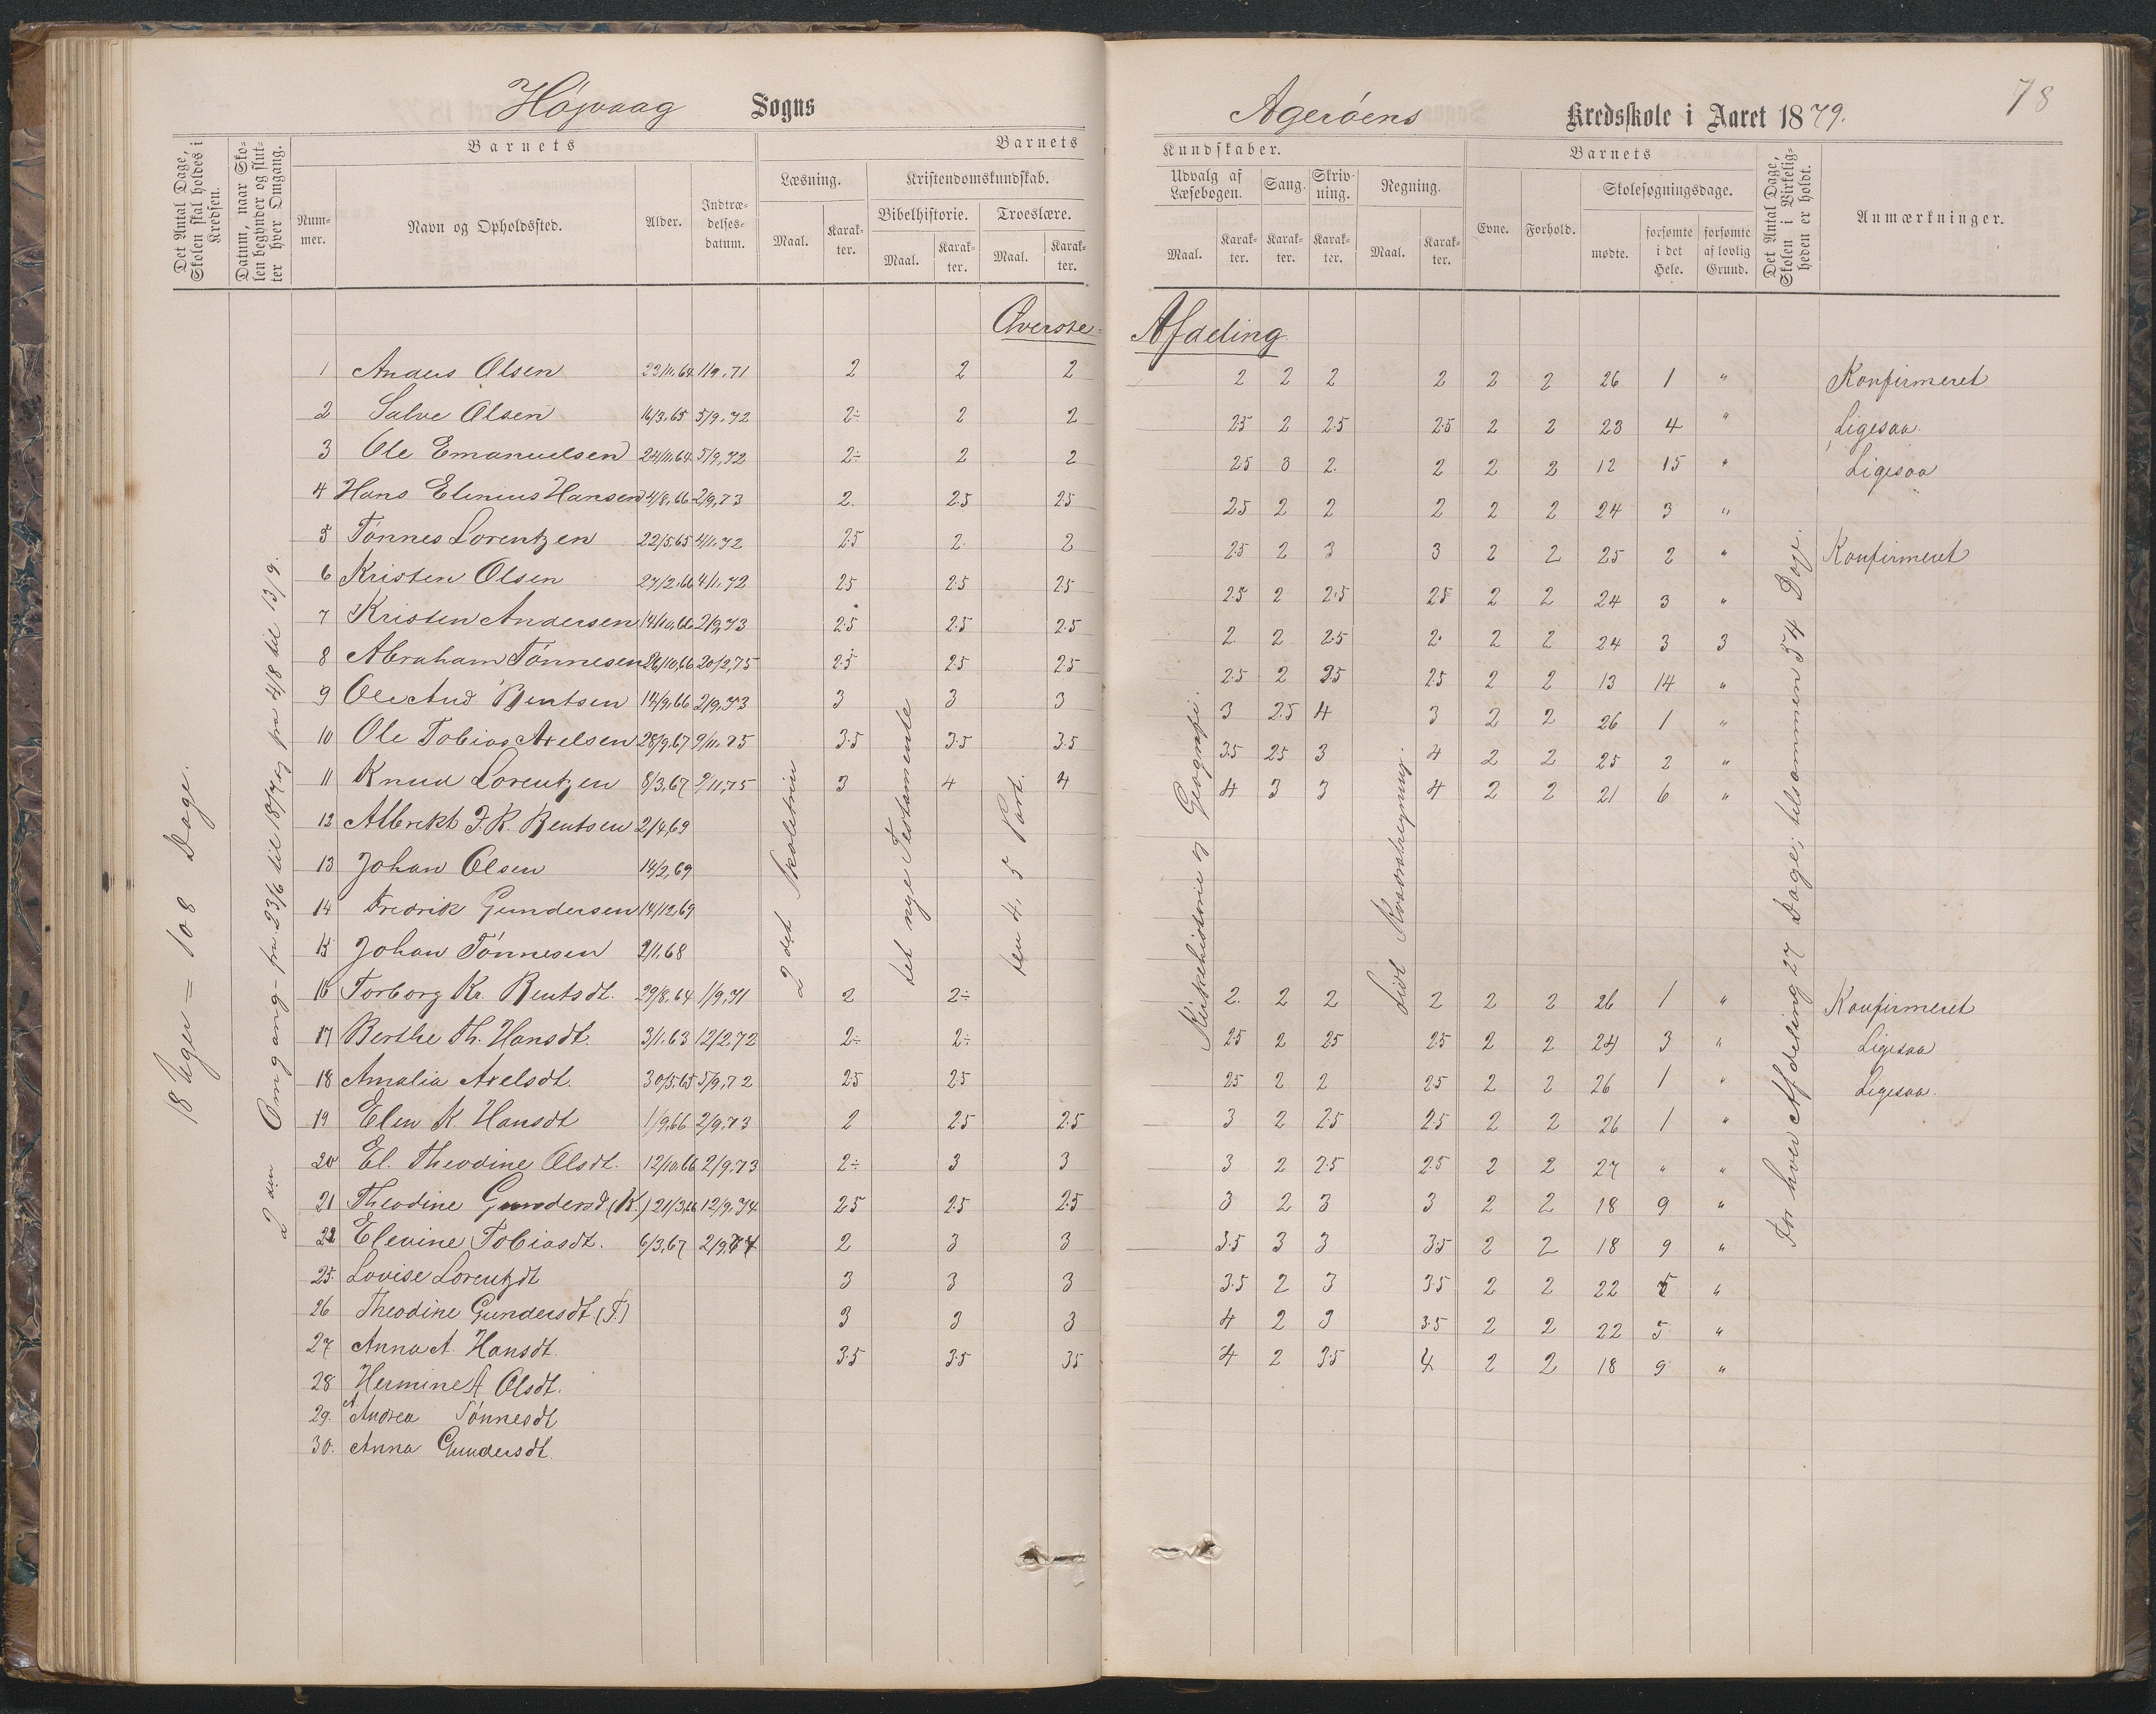 78
Højvaag Sogns Agerøens Kredsskole i Aaret 1879.
Det Antal Dage, Skolen skal holdes i Kredsen.
Datum, naar Skolen begynder og slutter hver Omgang.
Barnets
Nummer.
Navn og Opholdssted.
Alder.
Indtrædelsesdatum.
Barnets Kundskaber.
Læsning.
Maal.
Karakter.
Kristendomskundskab.
Bibelhistorie.
Maal.
Karakter.
Troeslære.
Maal.
Karakter.
Udvalg af Læsebogen.
Maal.
Karakter.
Sang.
Karakter.
Skrivning.
Karakter.
Regning.
Maal.
Karakter.
Barnets
Evne.
Forhold.
Skolesøgningsdage.
mødte.
forsømte i det Hele.
forsømte af lovlig Grund.
Det Antal Dage, Skolen i Virkeligheden er holdt.
Anmærkninger.
Øverste Afdeling
18 Uger = 108 Dage.
2den Omgang fra 23/6 til 18/7 og fra 4/8 til 13/9.
2det Skoletrin
det nye Testamente
den 4, 5 Part.
Kirkehistorie og Geografi.
For hver Afdeling 27 Dage, tilsammen 54 Dage.
1 Anders Olsen 22/11,64 1/9,71 2 2 2 2 2 2 2 2 2 26 1 " Konfirmeret
2 Salve Olsen 16/3,65 5/9,72 2÷ 2 2 2.5 2 2.5 2.5 2 2 23 4 " Ligesaa.
3 Ole Emanuelsen 24/11,64 5/9,72 2÷ 2 2 2.5 3 2. 2 2 2 12 15 " Ligesaa
4 Hans Elenius Hansen 4/8,66 2/9,73 2. 2.5 2.5 2.5 2 2 2 2 2 24 3 "
5 Tønnes Lorentzen 22/5,65 4/1,72 2.5 2 2 2.5 2 3 3 2 2 25 2 " Konfirmeret
6 Kristen Olsen 27/2,66 4/1,72 2.5 2.5 2.5 2.5 2 2.5 2.5 2 2 24 3 "
7 Kristen Andersen 14/10,66 2/9,73 2.5 2.5 2.5 2 2 2.5 2. 2 2 24 3 3
8 Abraham Tønnesen 26/10,66 20/2,75 2.5 2.5 2.5 2.5 2 2.5 2.5 2 2 13 14 "
9 Ole And. Bentsen 14/9,66 2/9,73 3 3 3 3 2.5 4 3 2 2 26 1 "
10 Ole Tobias Axelsen 28/9,67 9/11,75 3.5 3.5 3.5 3.5 2.5 3 4 2 2 25 2 "
11 Knud Lorentzen 8/3,67 2/11,75 3 4 4 4 3 3 4 2 2 21 6 "
12 Albrekt J. K. Bentsen 2/4,69
13 Johan Olsen 14/2,69
14 Fredrik Gundersen 14/12,69
15 Johan Tønnesen 2/1,68
16 Torborg Kr. Bentsdt. 29/8,64 1/9,71 2 2÷ 2. 2 2 2 2 2 26 1 " Konfirmeret
17 Berthe Th. Hansdt. 3/1,63 12/2,72 2÷ 2÷ 2.5 2 2.5 2.5 2 2 24 3 " Ligesaa
18 Amalia Axelsdt. 30/5,65 5/9,72 2.5 2.5 2.5 2 2 2.5 2 2 26 1 " Ligesaa.
19 Elen K. Hansdt 1/9,66 2/9,73 2 2.5 2.5 3 2 2.5 2.5 2 2 26 1 "
20 El. Theodine Olsdt. 12/10,66 2/9,73 2÷ 3 3 3 2 2.5 2.5 2 2 27 " "
21 Theodine Gundersd. (K.) 21/3,66 12/9,74 2.5 2.5 2.5 3 2 3 3 2 2 18 9 "
22 Elevine Tobiasdt. 6/3,67 2/9,74 2 3 3 3.5 3 3 3.5 2 2 18 9 "
25. Lovise Lorentzdt 3 3 3 3.5 2 3 3.5 2 2 22 5 "
26 Theodine Gundersdt (T.) 3 3 3 4 2 3 3.5 2 2 22 5 "
27 Anna A. Hansdt. 3.5 3.5 3.5 4 2 3.5 4 2 2 18 9 "
28 Hermine A Olsdt.
29. A. Andrea Tønnesdt
30. Anna Gundersdt.